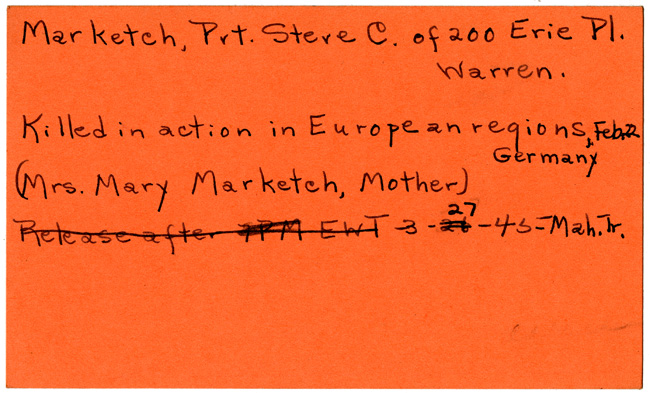 Marketch, Pvt. Steve C. of 200 Erie Pl.
Warren.
Killed in action in European regions, Feb. 22
Germany
(Mrs. Mary Marketch, Mother)
27
Release after 7PM EWT 3-26-45-Mah. Tr.